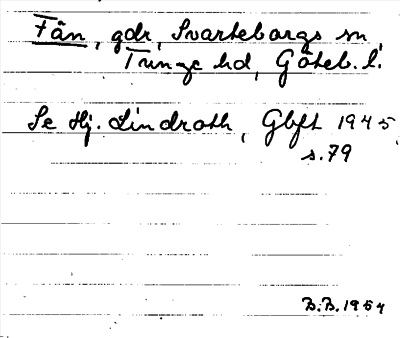 Fän, gdr, Svarteborgs sn,
Tunge hd, Göteb. l.
Se Hj. Lindroth, Gbft 1945
s. 79
B.B. 1954